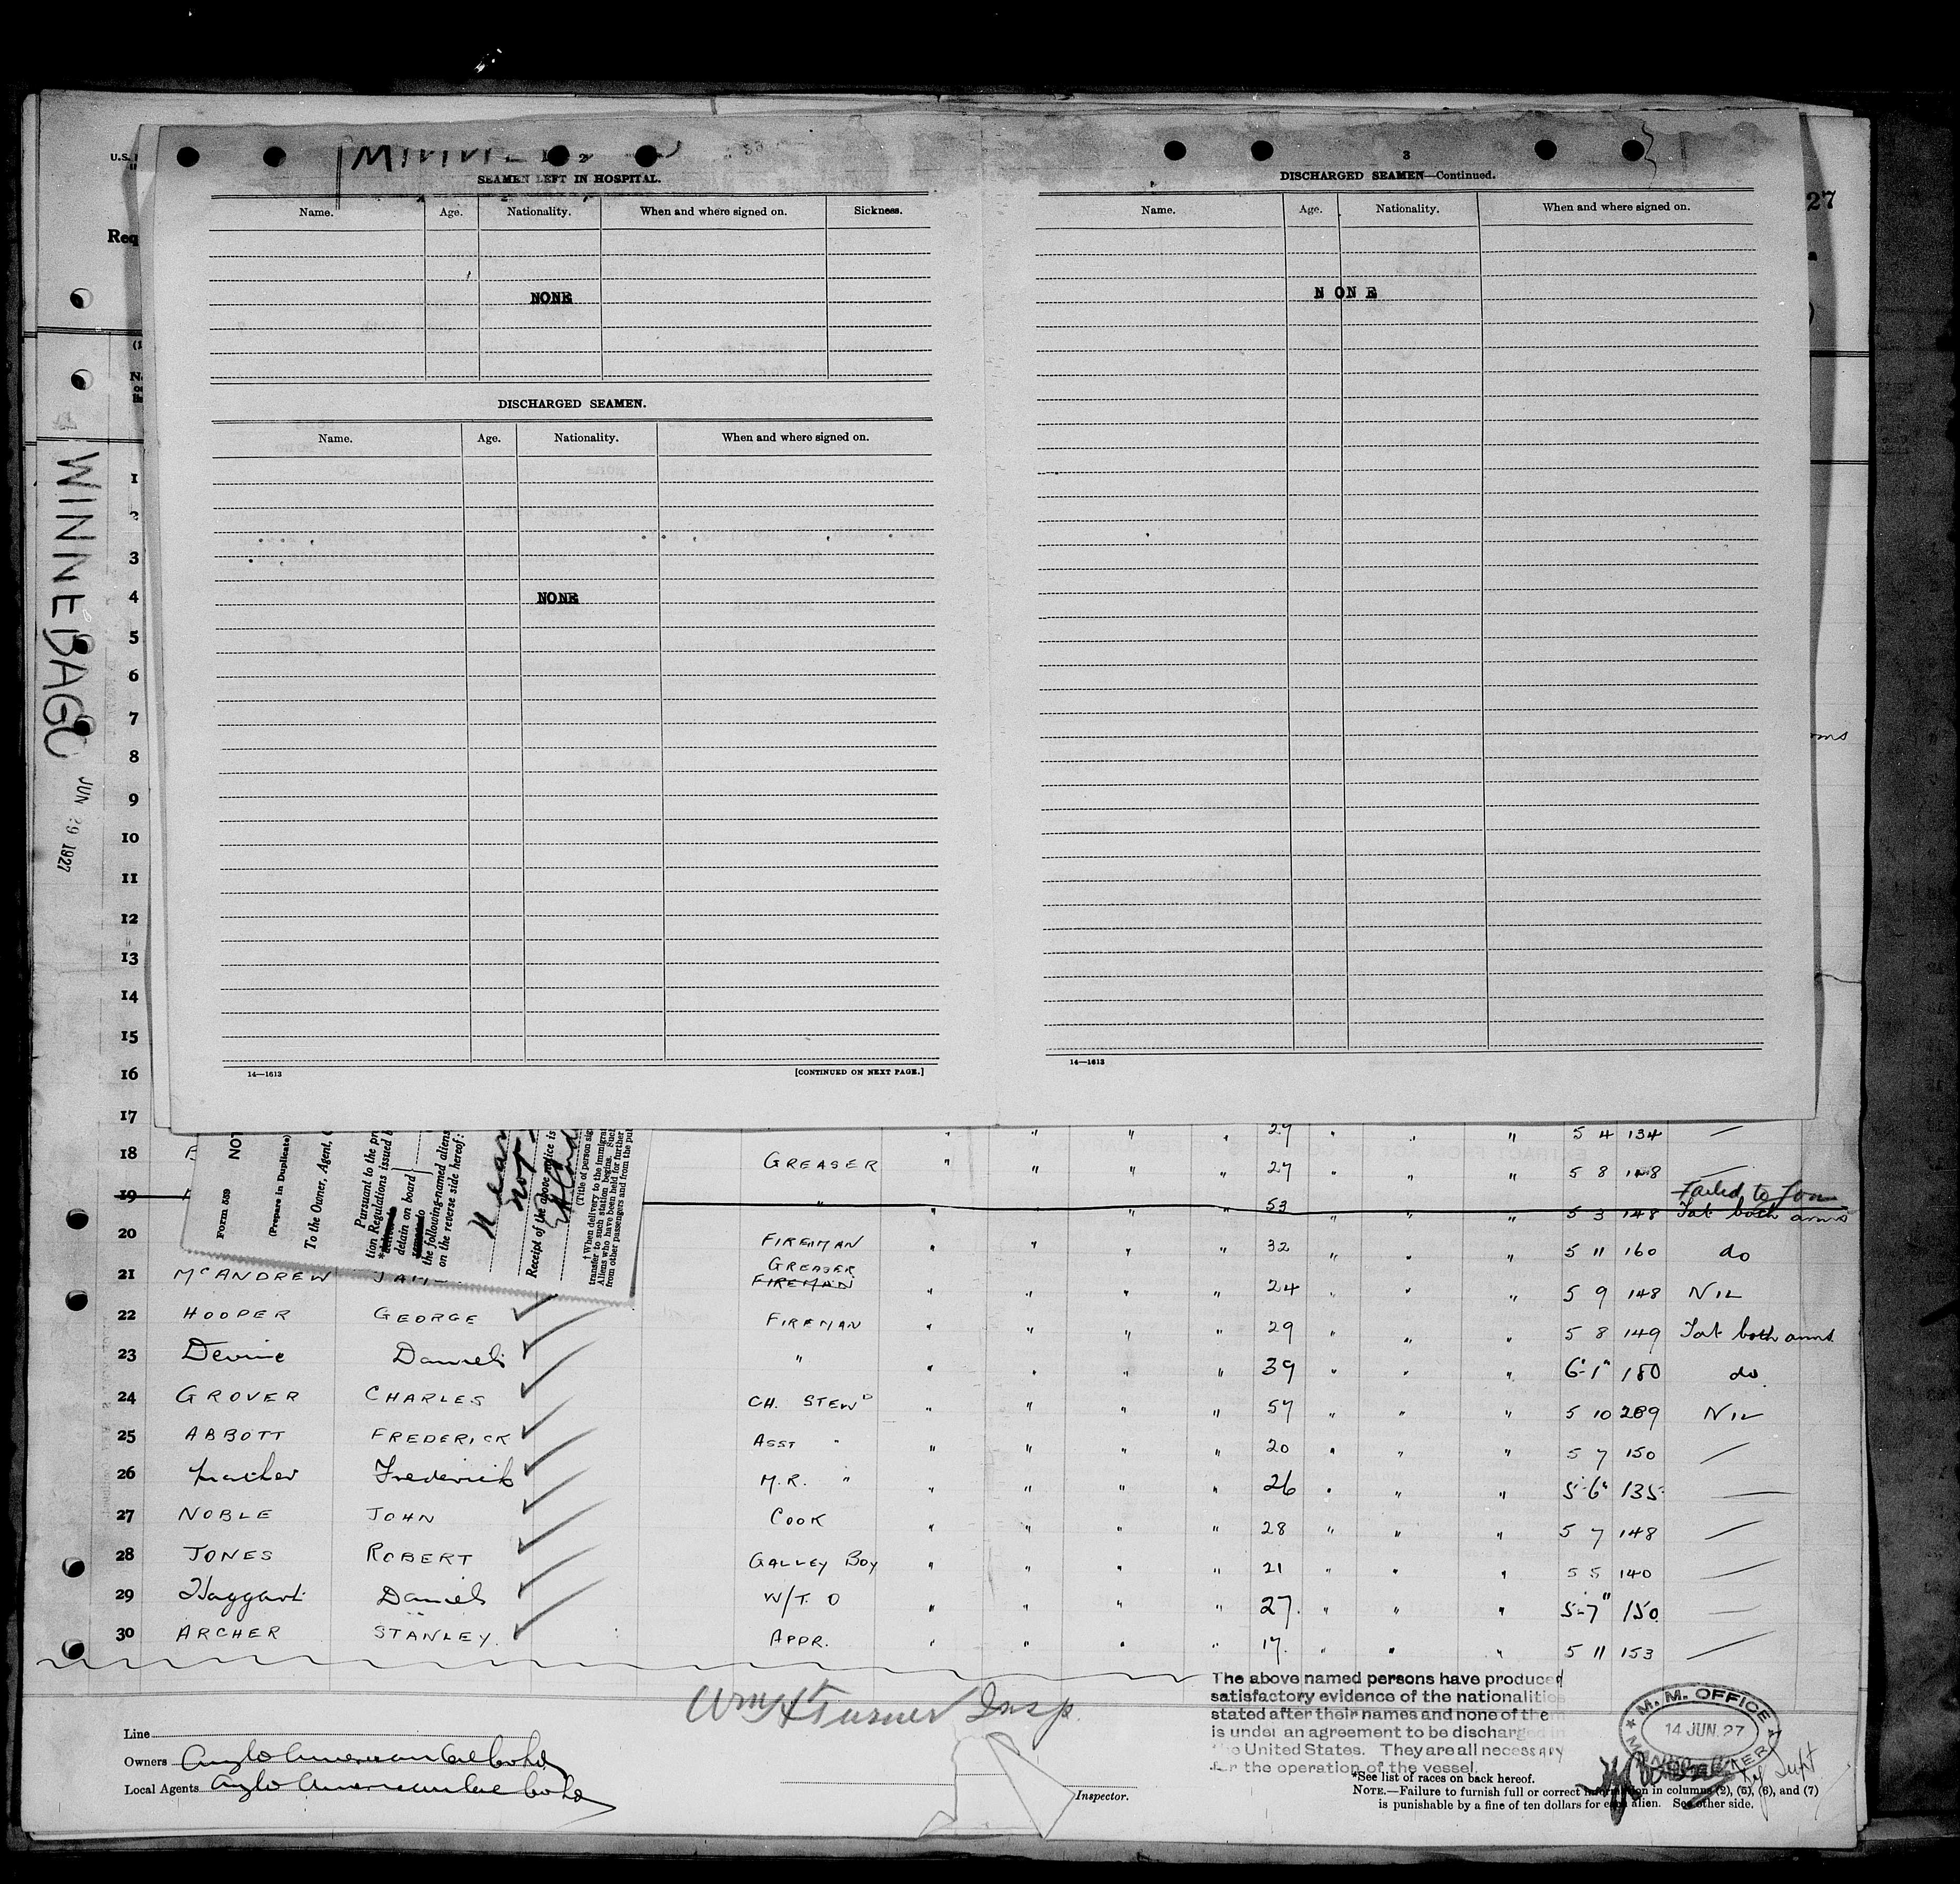 2
SEAMEN LEFT IN HOSPITAL.
Name. Age. Nationality. When and where signed on. Sickness.
NONE
DISCHARGED SEAMEN.
Name. Age. Nationality. When and where signed on.
NONE
14—1613 [CONTINUED ON NEXT PAGE.]
3
DISCHARGED SEAMEN—Continued.
Name. Age. Nationality. When and where signed on.
N ON E
14—1613
U.S.
Req
27
WINNEBAGO
JUN 29 1927
1
2
3
4
5
6
7
8
9
10
11
12
13
14
15
16
17 29 " " " 5 4 134 —
18 GREASER " " " " 27 " " " 5 8 148 —
Failed to Join
19 " " " " " 53 " " " 5 3 148 Tat both arms
20 FIREMAN " " " " 32 " " " 5 11 160 do
GREASER
21 McANDREW FIREMAN " " " " 24 " " " 5 9 148 NIL
22 HOOPER GEORGE FIREMAN " " " " 29 " " " 5 8 149 Tat both arms
23 Devine Daniel " " " " " 39 " " " 6-1" 180 do
24 GROVER CHARLES CH. STEWD " " " " 57 " " " 5 10 289 NIL
25 ABBOTT FREDERICK ASST " " " " " 20 " " " 5 7 150 —
26 Frederick M.R. " " " " " 26 " " " 5-6" 135 —
27 NOBLE JOHN COOK " " " " 28 " " " 5 7 148 —
28 JONES ROBERT GALLEY BOY " " " " 21 " " " 5 5 140 —
29 Haggart Daniel W/T. O " " " " 27. " " " 5-7" 150 —
30 ARCHER STANLEY. APPR. " " " " 17. " " " 5 11 153 —
Form 539
(Prepare in Duplicate)
To the Owner, Agent,
Pursuant to the pr
tion Regulations issued
detain on board
the following-named aliens
on the reverse side hereof:
not
Receipt of the above notice is
(Title of person sig
†When delivery to the immigra
transfer to such station begins. Such
Aliens who have been held for further
from other passengers and from the pu
Wm H Turner Insp.
The above named persons have produced
satisfactory evidence of the nationalities
stated after their names and none of them
is under an agreement to be discharged in
the United States. They are all necessary
for the operation of the vessel.
M. M. OFFICE
14 JUN. 27
Line
Owners Anglo American Oil Co Ltd
Local Agents Anglo American Oil Co Ltd
Inspector.
*See list of races on back hereof.
NOTE.—Failure to furnish full or correct information in columns (2), (5), (6), and (7)
is punishable by a fine of ten dollars for each alien. See other side.